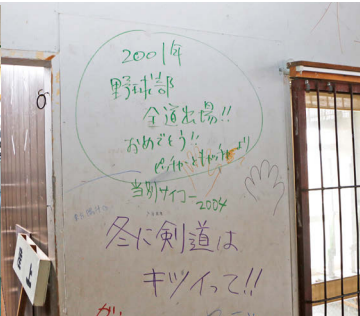 2001年
野球部
全道出場!!
おめでとう!!
当別サイコー2004
冬に剣道は
キツイって!!